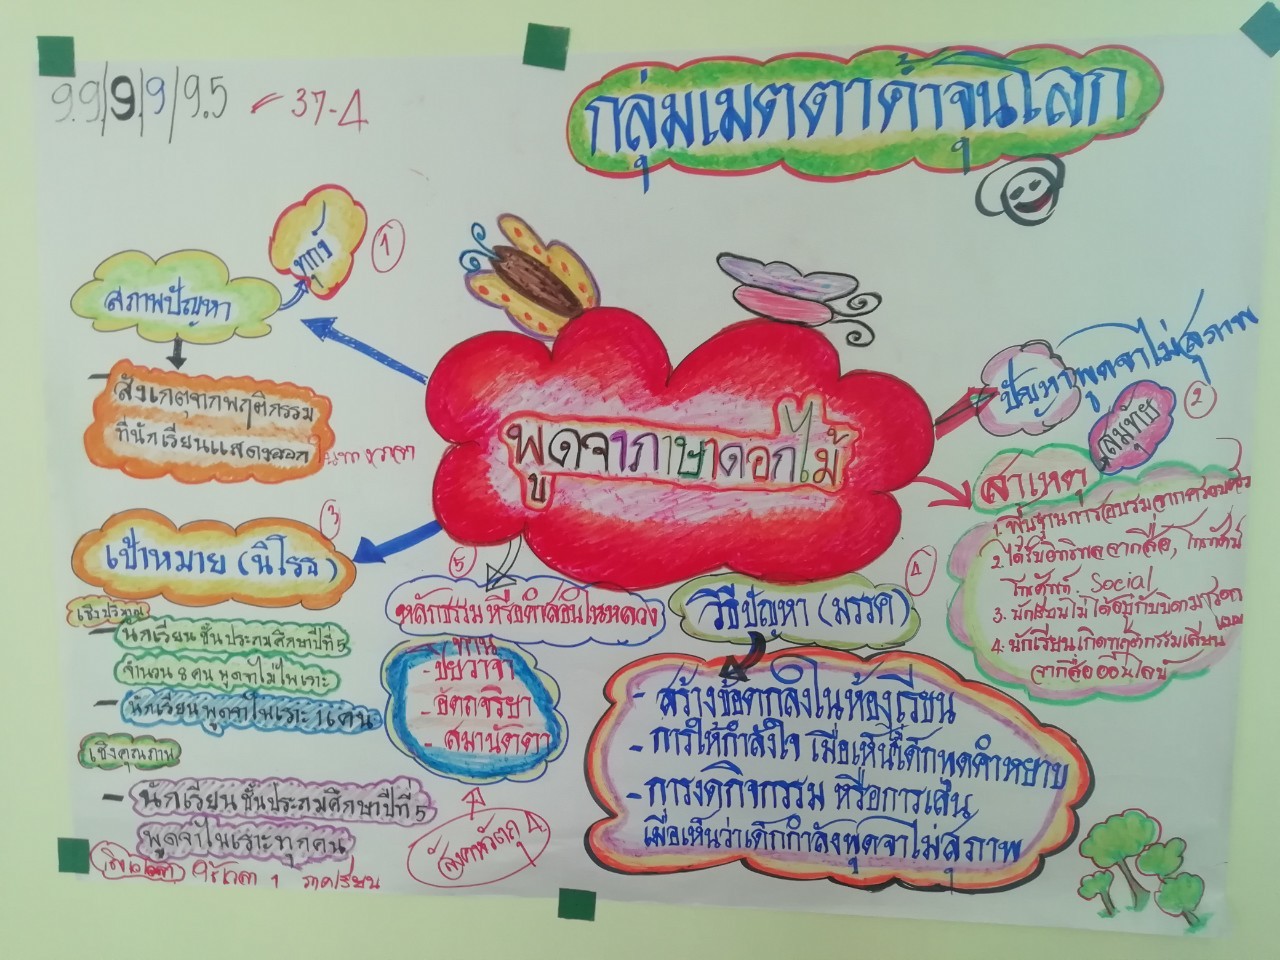 9.9/9/9/9.5 37.4
กลุ่มเมตตาค้ำจุนโลก
ทุกข์
1
สภาพปัญหา
- สังเกตุจากพฤติกรรม
ที่นักเรียนแสดงออก
พูดจาภาษาดอกไม้
ปัญหาพูดจาไม่สุภาพ
2
สมุทัย
สาเหตุ
1. พื้นฐานการอบรมจากครอบครัว
2. ได้รับอิทธิพลจากสื่อ, โทรทัศน์
โทรศัพท์. Social
3. นักเรียนไม่ได้อยู่กับบิดามารดา
4. นักเรียนเกิดพฤติกรรมเลียนแบบ
จากสื่อออนไลน์
3
เป้าหมาย (นิโรธ)
เชิงปริมาณ
- นักเรียนชั้นประถมศึกษาปีที่ 5
จำนวน 8 คน พูดจาไม่ไพเราะ
- นักเรียนพูดจาไพเราะ
เชิงคุณภาพ
- นักเรียนชั้นประถมศึกษาปีที่ 5
พูดจาไพเราะทุกคน
1 ภาคเรียน
5
หลักธรรม หรือคำสอนในหลวง
ทาน
- ปิยวาจา
- อัตถจริยา
- สมานัตตา
สังคหวัตถุ 4
4
วิธีปัญหา (มรรค)
- สร้างข้อตกลงในห้องเรียน
- การให้กำลังใจ เมื่อเห็นเด็กพูดคำหยาบ
- การงดกิจกรรม หรือการเล่น
เมื่อเห็นว่าเด็กกำลังพูดจาไม่สุภาพ